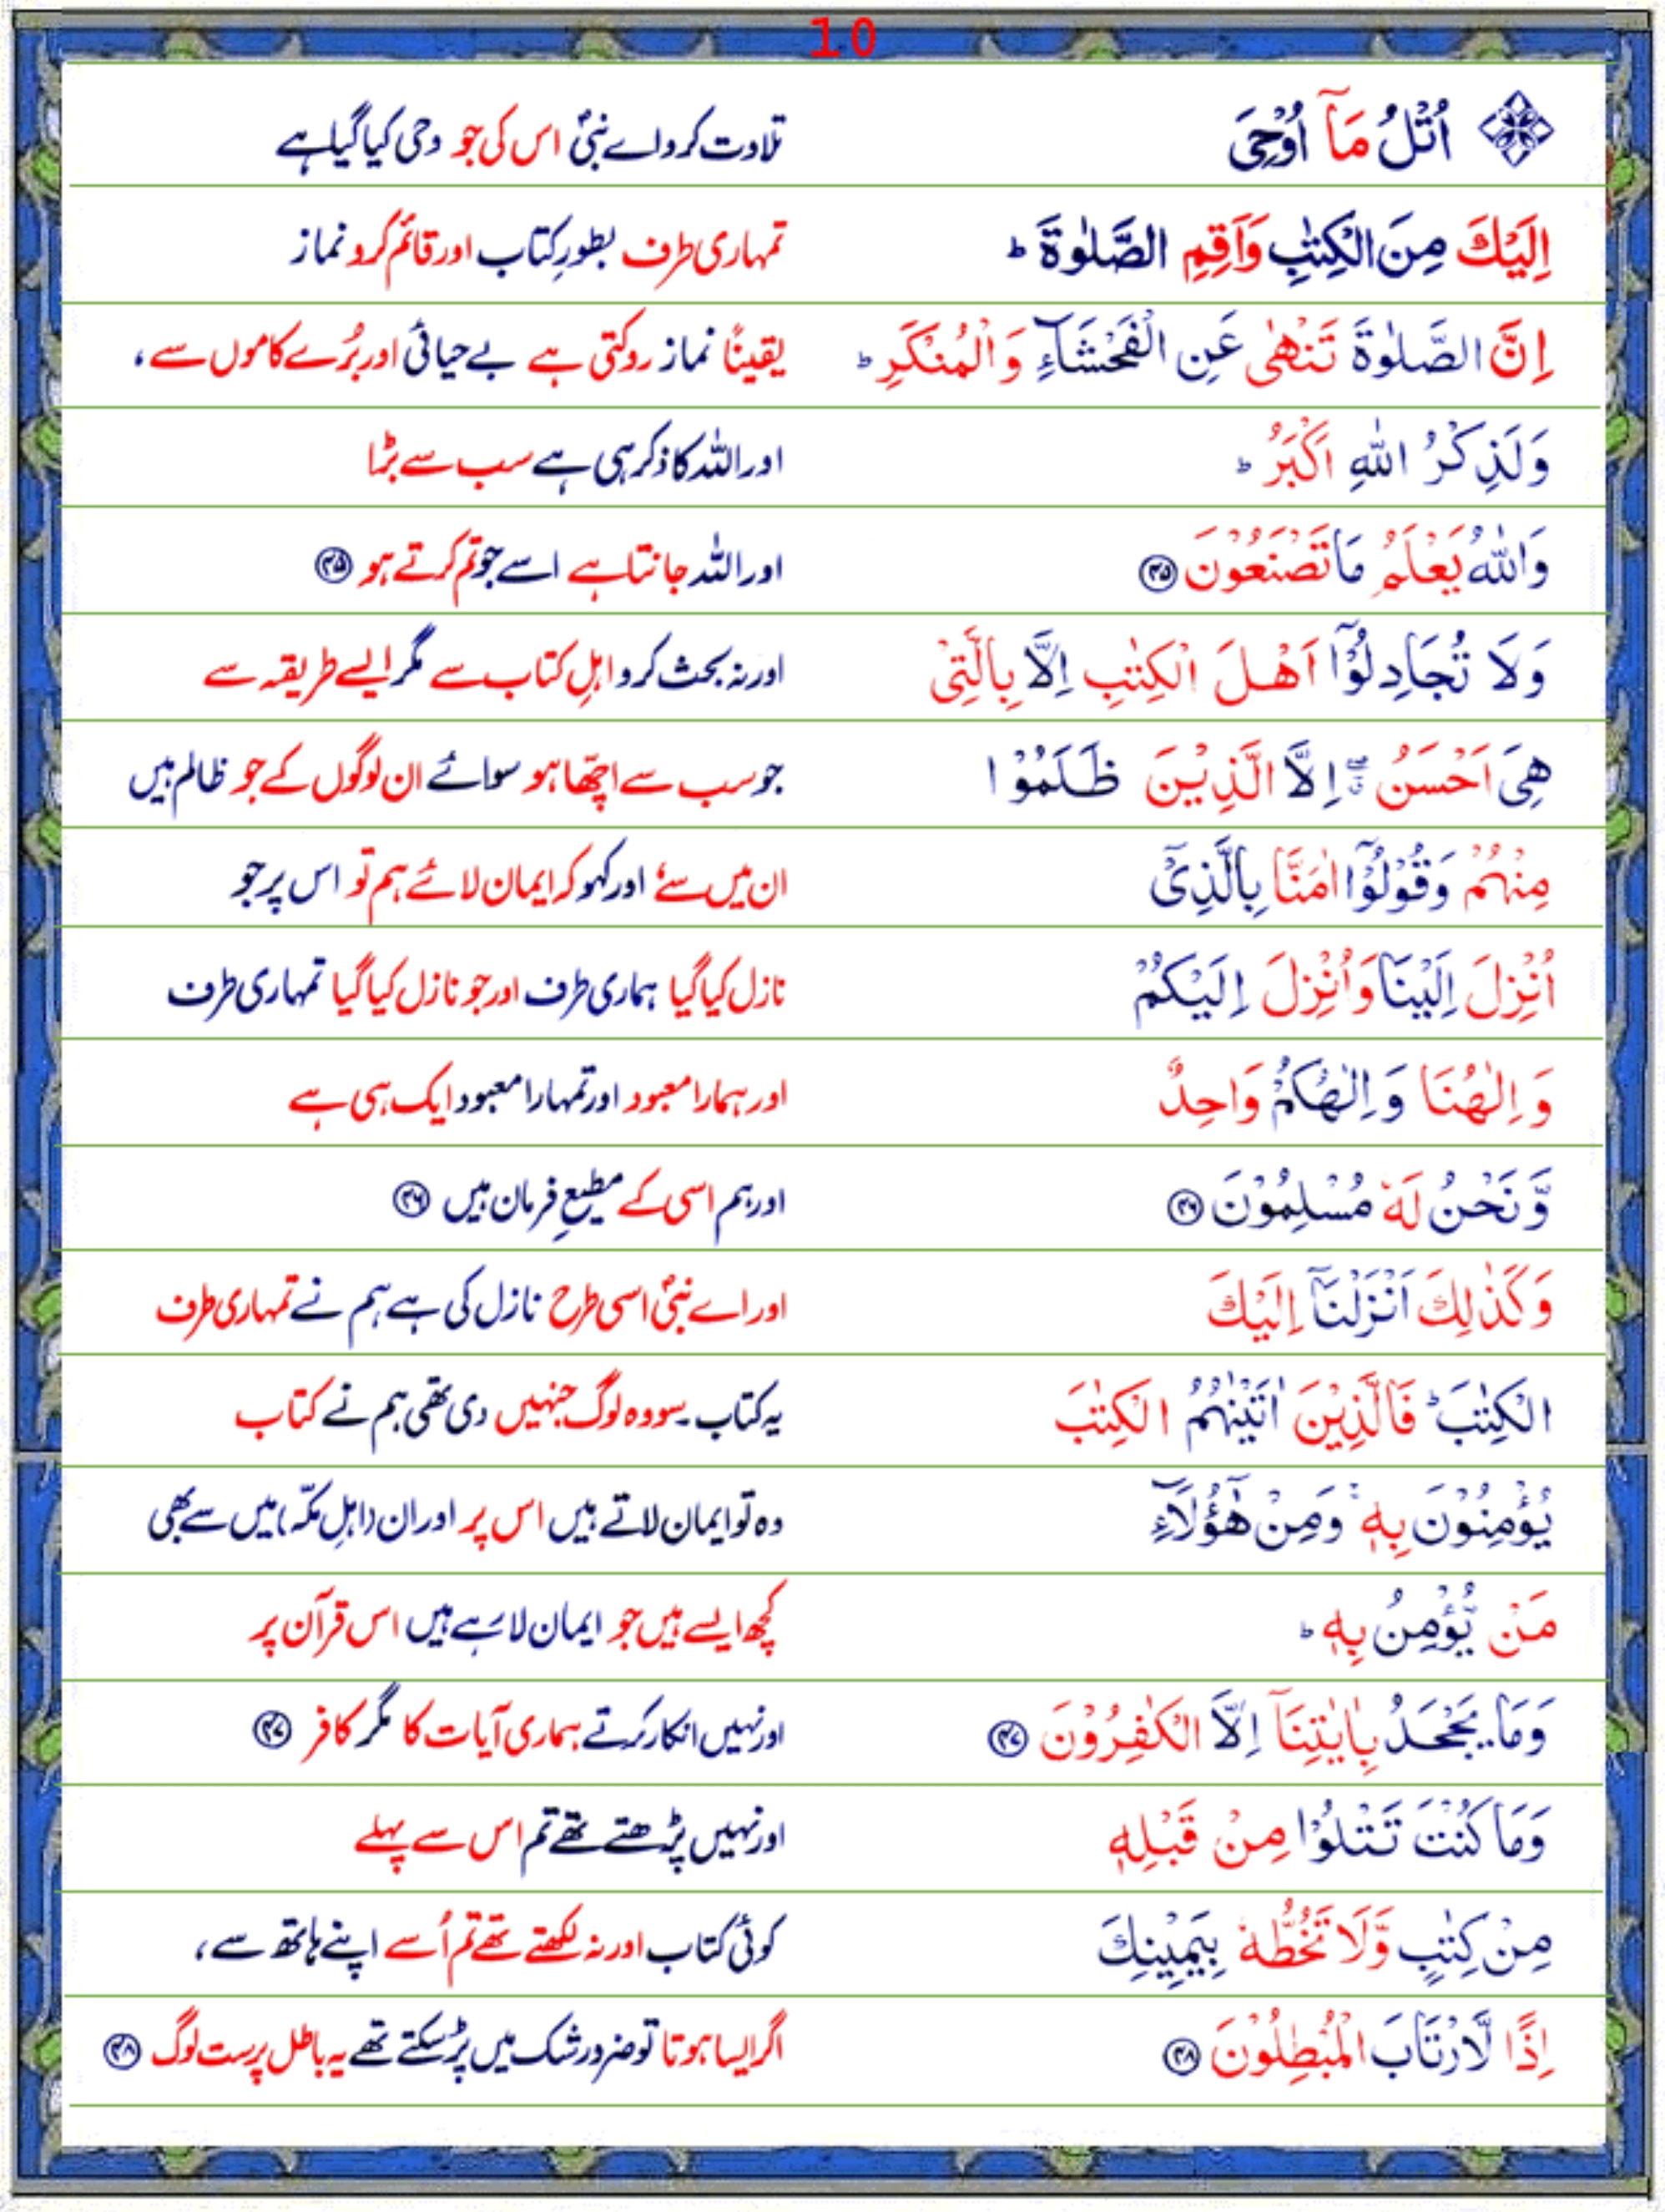 10
اُتْلُ مَآ اُوْحِیَ تلاوت کرو اے نبیؐ اس کی جو وحی کیا گیا ہے
اِلَیْكَ مِنَ الْکِتٰبِ وَاَقِمِ الصَّلٰوةَ ؕ تمہاری طرف بطورِ کتاب اور قائم کرو نماز
اِنَّ الصَّلٰوةَ تَنْهٰی عَنِ الْفَحْشَآءِ وَالْمُنْکَرِ ؕ یقیناً نماز روکتی ہے بے حیائی اور بُرے کاموں سے،
وَلَذِکْرُ اللّٰهِ اَکْبَرُ ؕ اور اللہ کا ذکر ہی ہے سب سے بڑا
وَاللّٰهُ یَعْلَمُ مَا تَصْنَعُوْنَ ﴿۴۵﴾ اور اللہ جانتا ہے اسے جو تم کرتے ہو ﴿۴۵﴾
وَلَا تُجَادِلُوْۤا اَهْلَ الْکِتٰبِ اِلَّا بِالَّتِیْ اور نہ بحث کرو اہلِ کتاب سے مگر ایسے طریقہ سے
هِیَ اَحْسَنُ ۖۗ اِلَّا الَّذِیْنَ ظَلَمُوْا جو سب سے اچھا ہو سوائے ان لوگوں کے جو ظالم ہیں
مِنْهُمْ وَقُوْلُوْۤا اٰمَنَّا بِالَّذِیْۤ ان میں سے، اور کہو کہ ایمان لائے ہم تو اس پر جو
اُنْزِلَ اِلَیْنَا وَاُنْزِلَ اِلَیْکُمْ نازل کیا گیا ہماری طرف اور جو نازل کیا گیا تمہاری طرف
وَ اِلٰهُنَا وَ اِلٰهُکُمْ وَاحِدٌ اور ہمارا معبود اور تمہارا معبود ایک ہی ہے
وَّ نَحْنُ لَهٗ مُسْلِمُوْنَ ﴿۴۶﴾ اور ہم اسی کے مطیعِ فرمان ہیں ﴿۴۶﴾
وَکَذٰلِكَ اَنْزَلْنَاۤ اِلَیْكَ اور اے نبیؐ اسی طرح نازل کی ہے ہم نے تمہاری طرف
الْکِتٰبَ ؕ فَالَّذِیْنَ اٰتَیْنٰهُمُ الْکِتٰبَ یہ کتاب۔ سو وہ لوگ جنہیں دی تھی ہم نے کتاب
یُؤْمِنُوْنَ بِهٖ ۚ وَمِنْ هٰۤؤُلَآءِ وہ تو ایمان لاتے ہیں اس پر اور ان (اہلِ مکّہ) میں سے بھی
مَنْ یُّؤْمِنُ بِهٖ ؕ کچھ ایسے ہیں جو ایمان لا رہے ہیں اس قرآن پر
وَمَا یَجْحَدُ بِاٰیٰتِنَاۤ اِلَّا الْکٰفِرُوْنَ ﴿۴۷﴾ اور نہیں انکار کرتے ہماری آیات کا مگر کافر ﴿۴۷﴾
وَمَا کُنْتَ تَتْلُوْا مِنْ قَبْلِهٖ اور نہیں پڑھتے تھے تم اس سے پہلے
مِنْ کِتٰبٍ وَّلَا تَخُطُّهٗ بِیَمِیْنِكَ کوئی کتاب اور نہ لکھتے تھے تم اُسے اپنے ہاتھ سے،
اِذًا لَّارْتَابَ الْمُبْطِلُوْنَ ﴿۴۸﴾ اگر ایسا ہوتا تو ضرور شک میں پڑ سکتے تھے یہ باطل پرست لوگ ﴿۴۸﴾